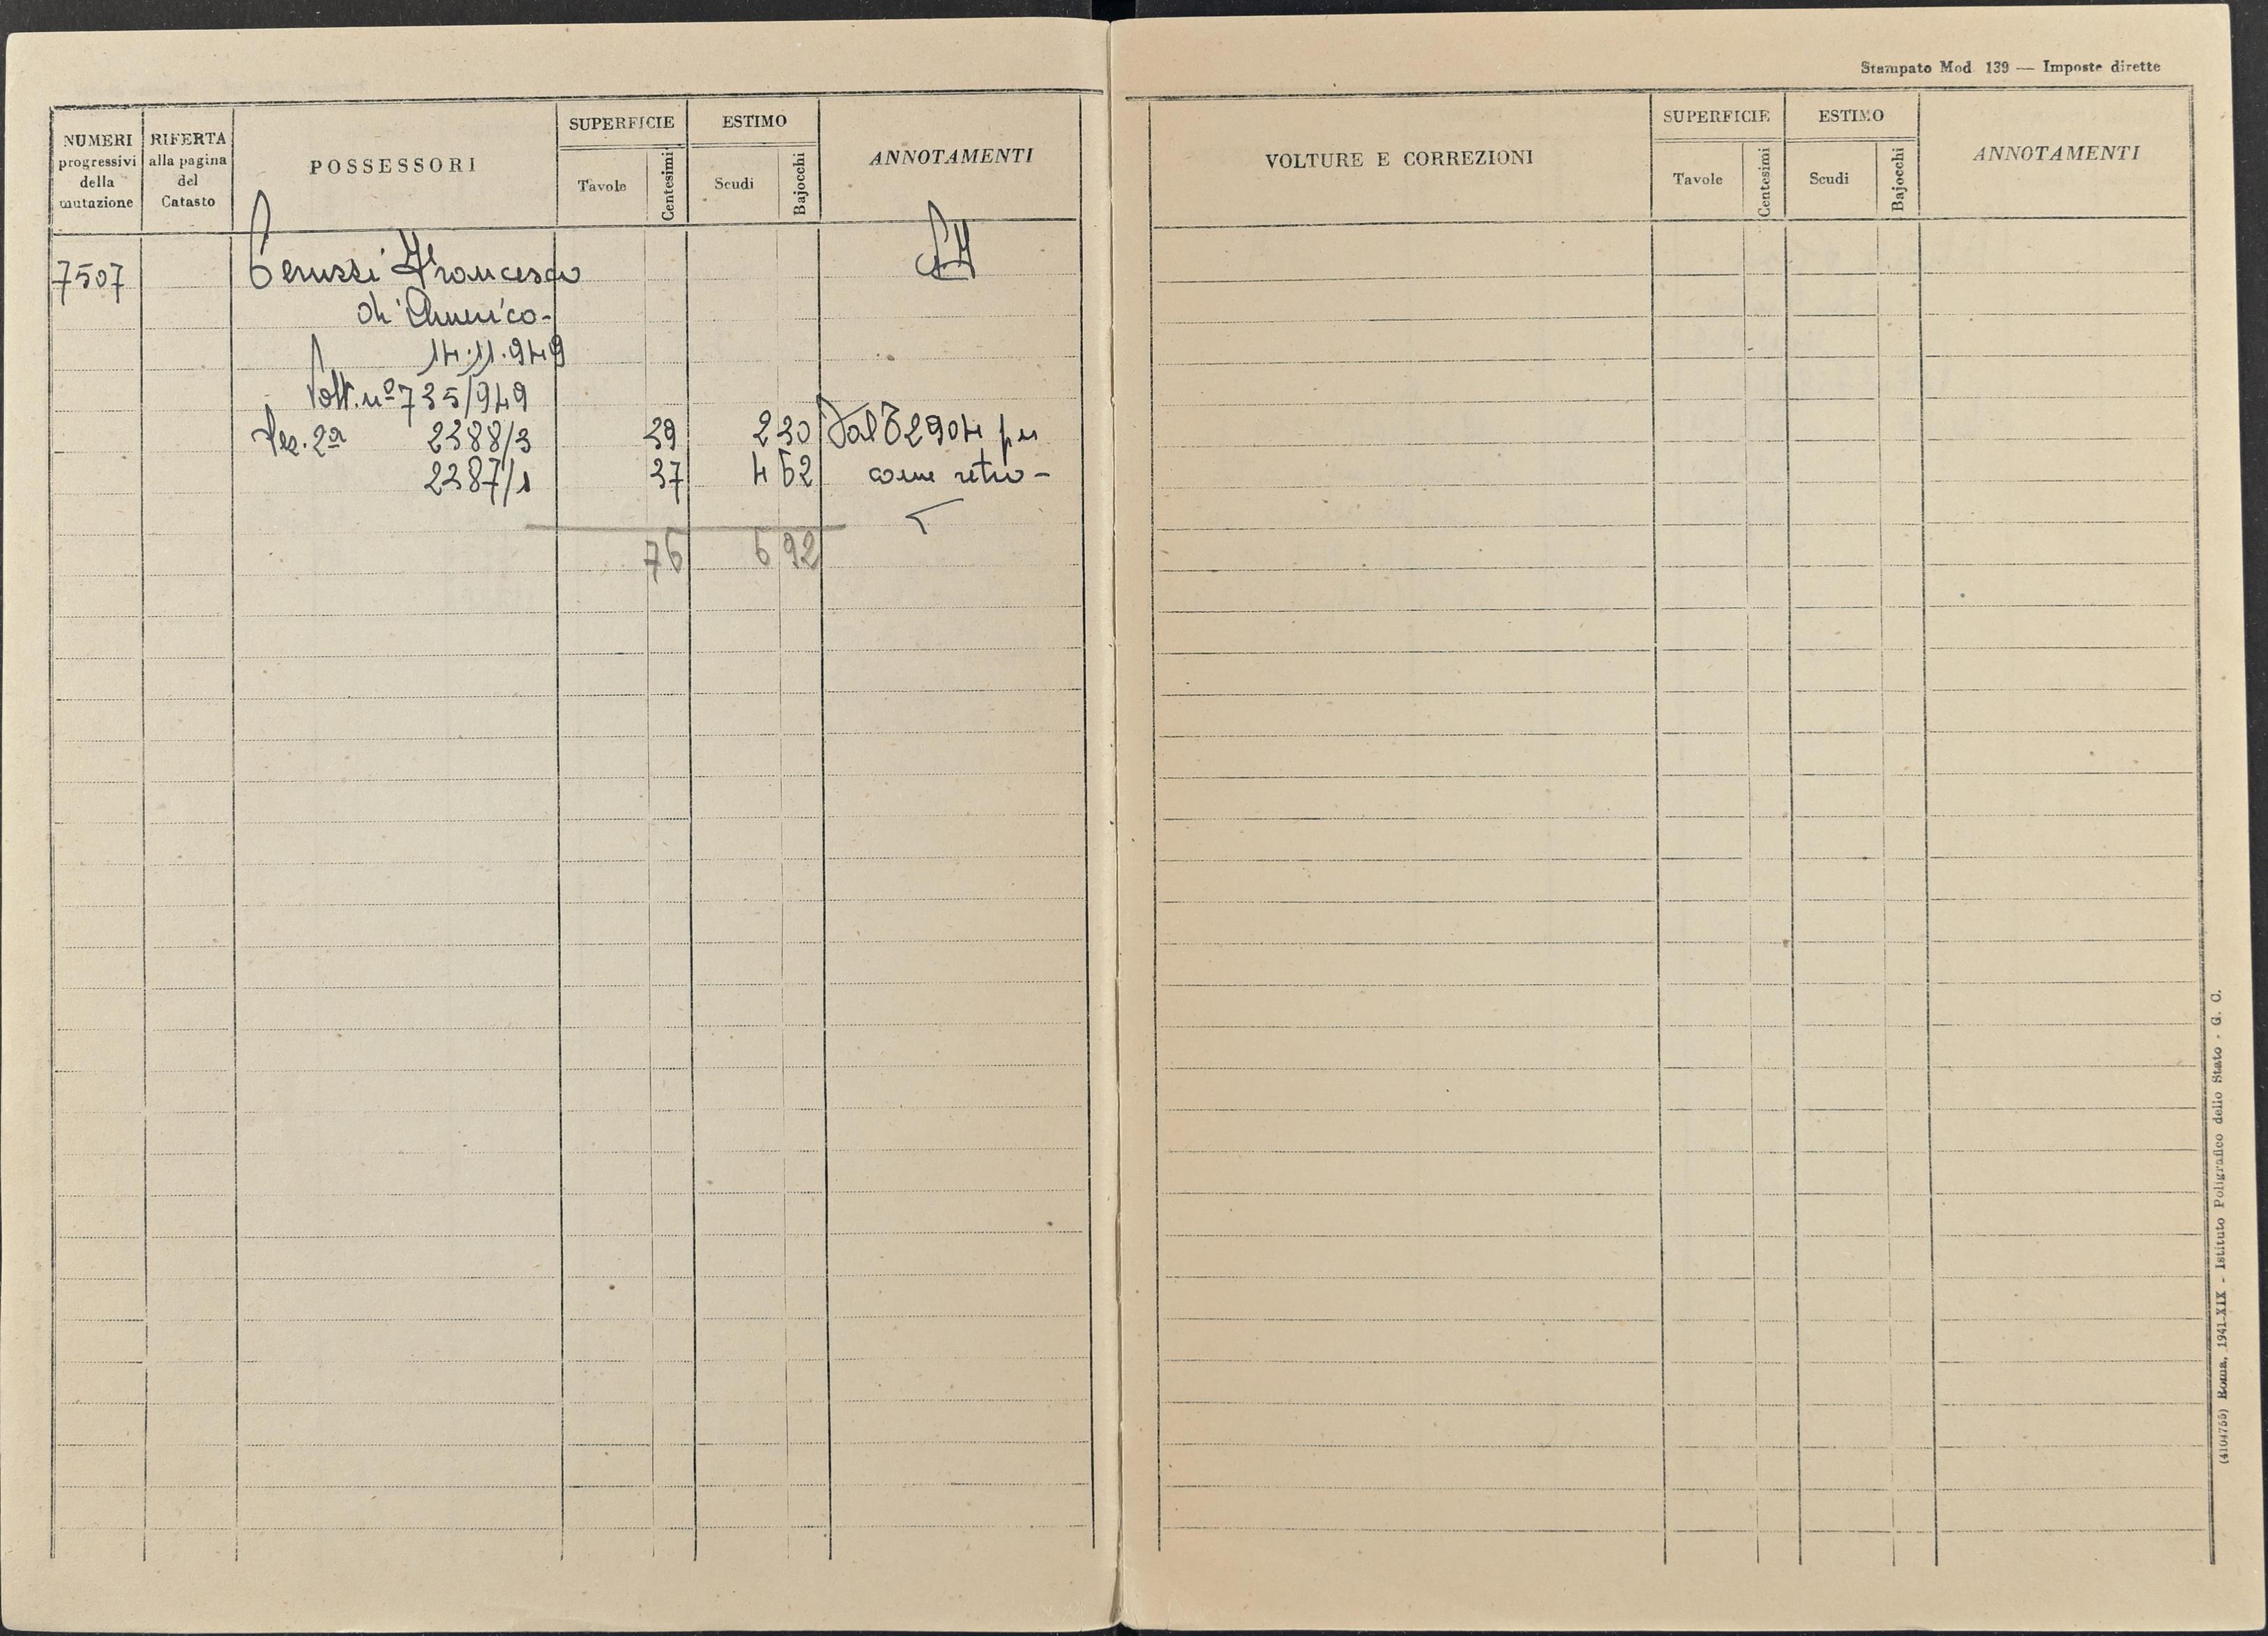 NUMERI progressivi della mutazione
RIFERTA alla pagina del Catasto
POSSESSORI
SUPERFICIE
Tavole
Centesimi
ESTIMO
Scudi
Bajocchi
ANNOTAMENTI
7507
Perussi Francesco
di Americo-
14.11.949
Volt. nº 735/949
Sez. 2ª 2388/3 39 2 30 Dal 62904 per
2387/1 37 4 62 come retro-
76 6 92
Stampato Mod. 139 — Imposte dirette
VOLTURE E CORREZIONI
SUPERFICIE
Tavole
Centesimi
ESTIMO
Scudi
Bajocchi
ANNOTAMENTI
(4104766) Roma, 1941-XIX - Istituto Poligrafico dello Stato - G. C.